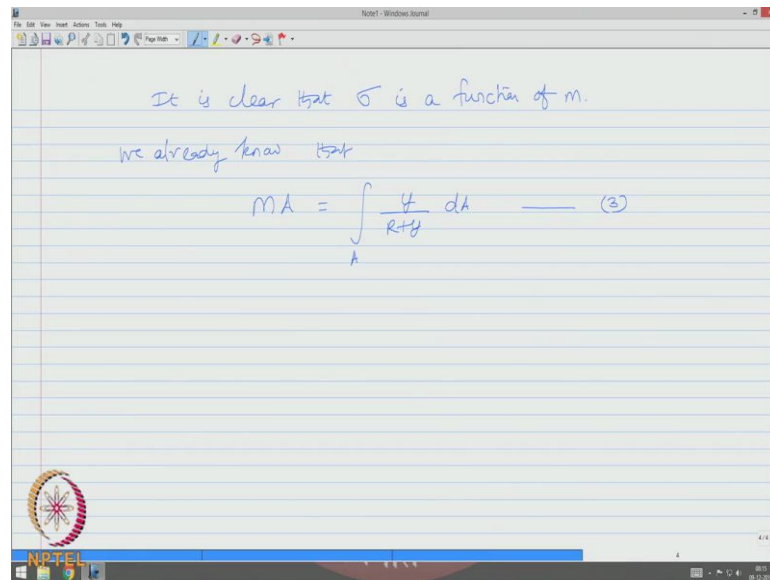 Note1 - Windows Journal
File Edit View Insert Actions Tools Help
Page Width
It is clear that σ is a function of m.
we already know that
mA = ∫_A y/(R+y) dA —— (3)
4/4
4
NPTEL